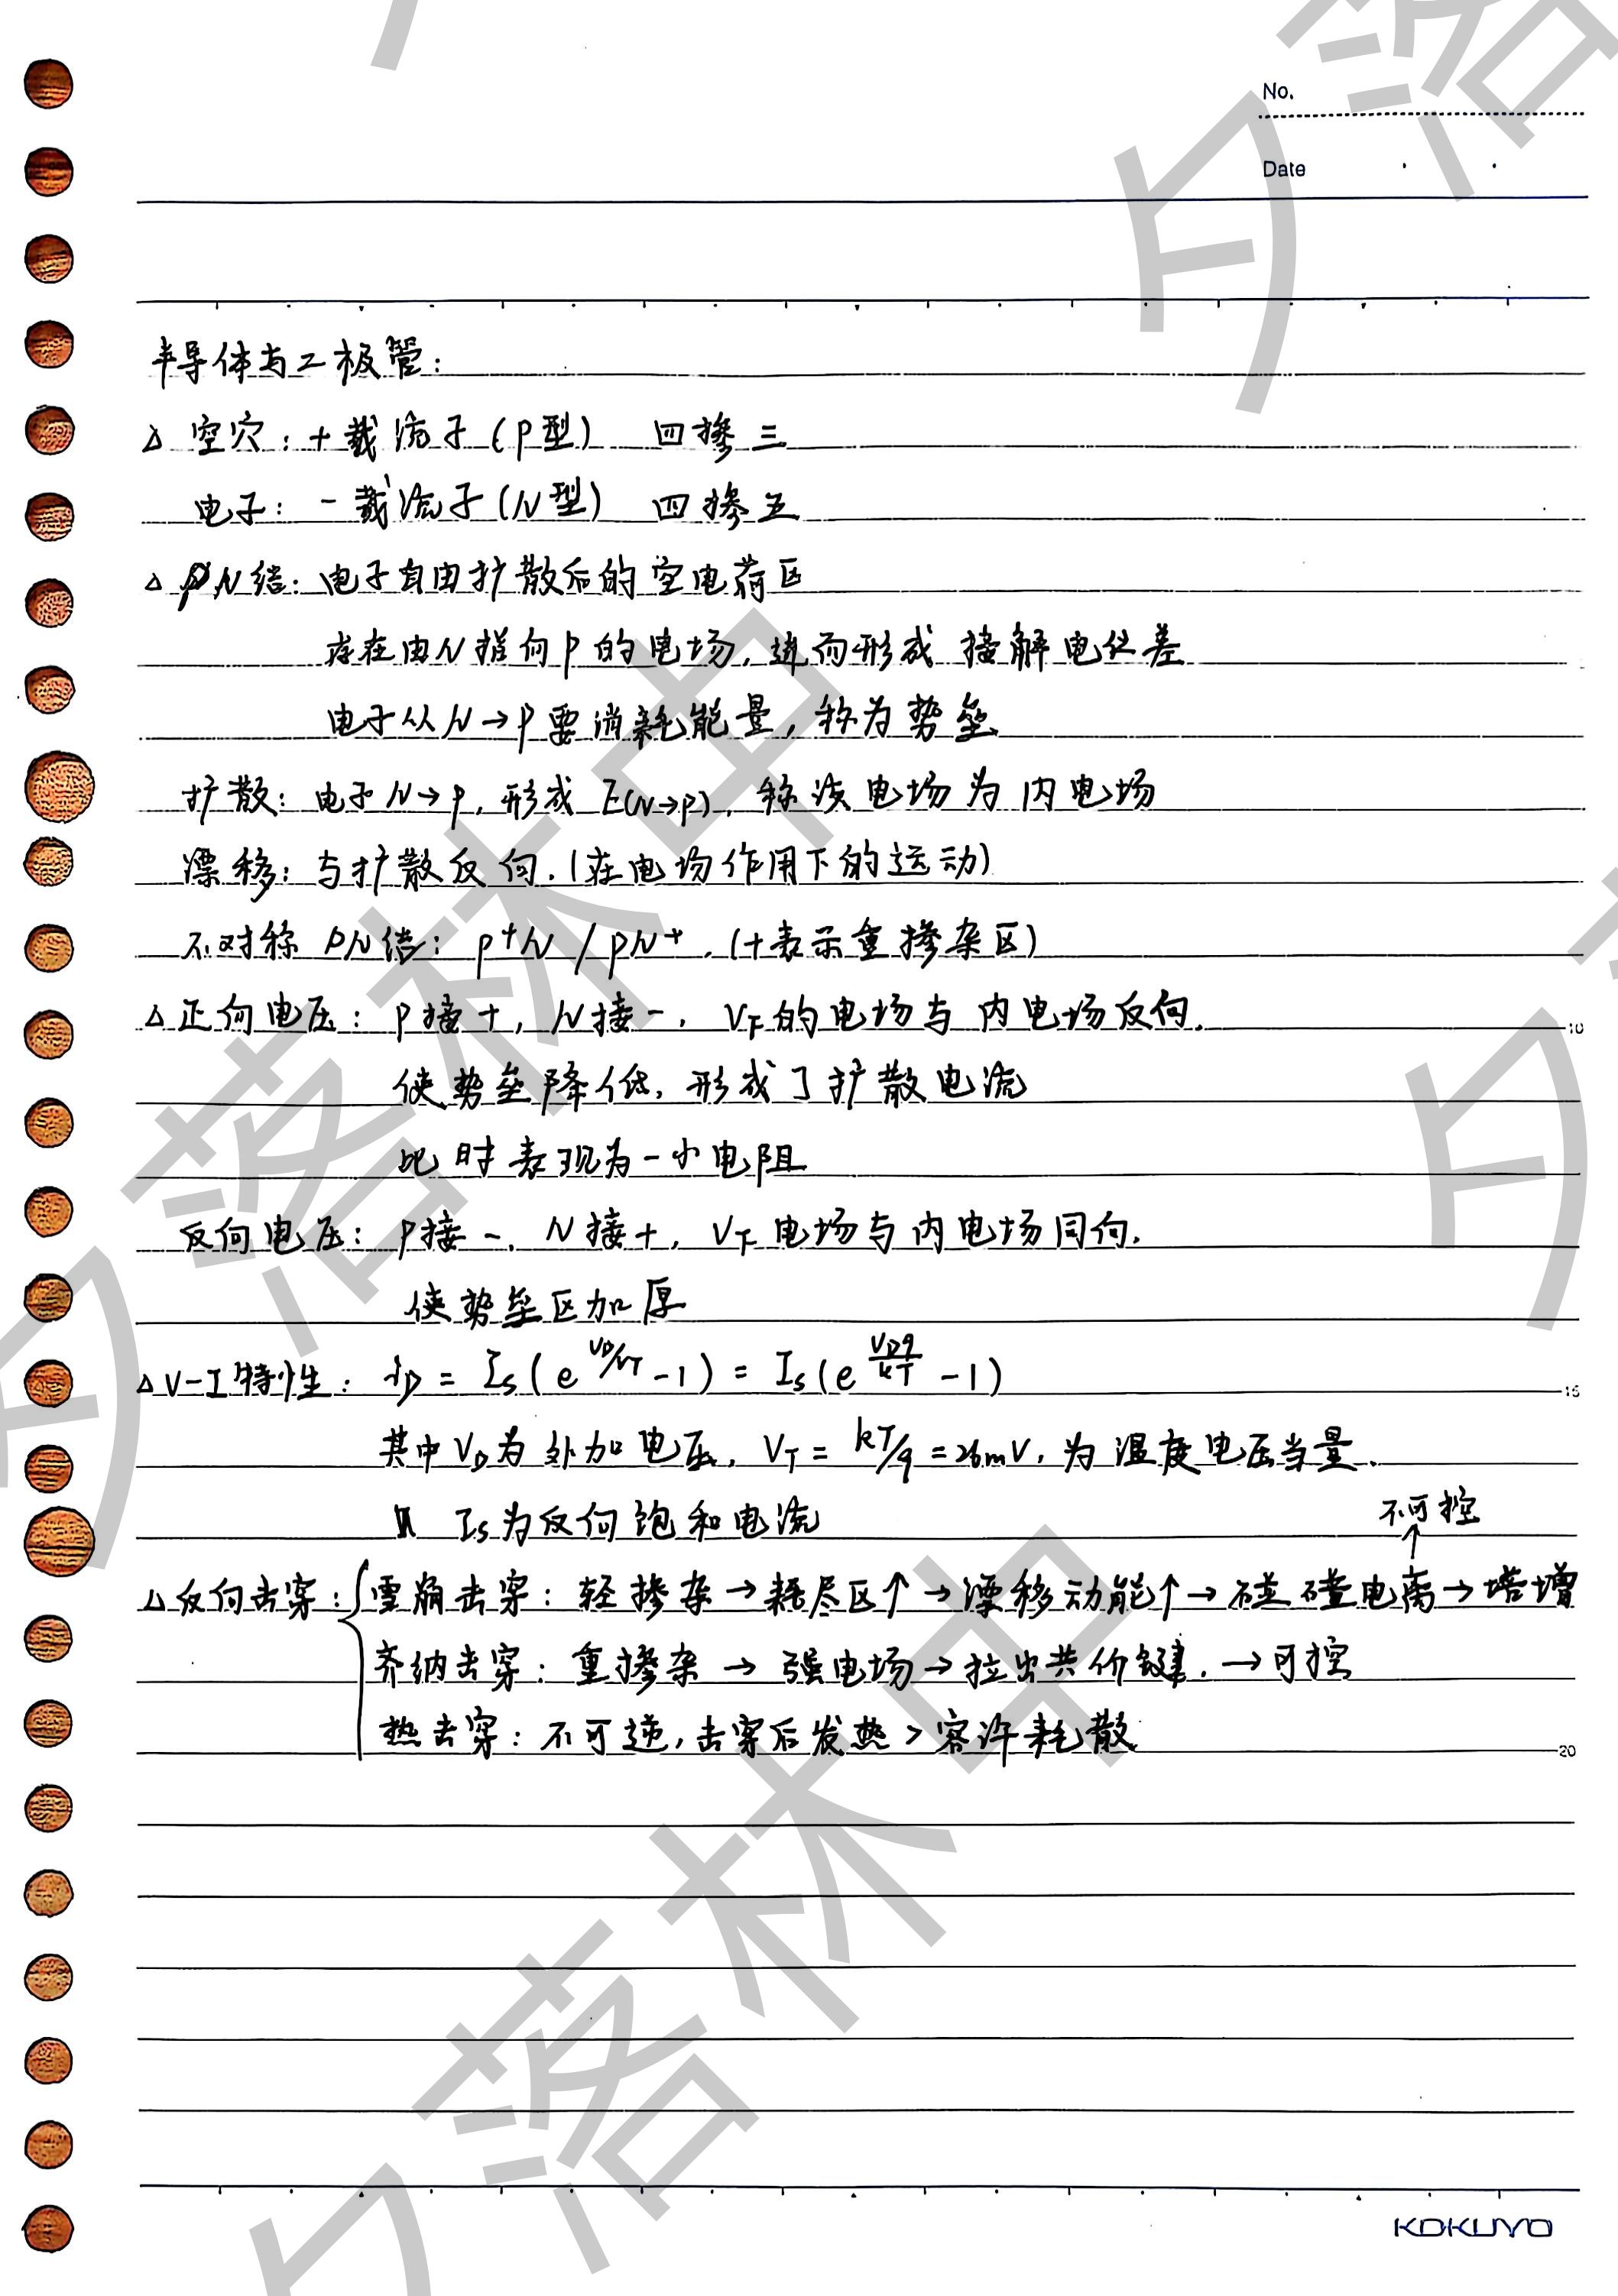 No.
Date
半导体与二极管:
△ 空穴: + 载流子 (P型) 四掺三
电子: - 载流子 (N型) 四掺五
△ PN结: 电子自由扩散后的空电荷区
存在由N指向P的电场, 进而形成 接解电位差
电子从N→P要消耗能量, 称为势垒
扩散: 电子N→P, 形成 E(N→P), 称该电场为内电场
漂移: 与扩散反向. (在电场作用下的运动)
不对称 PN结: P⁺N / PN⁺. (+表示重掺杂区)
△ 正向电压: P接+, N接-, V_F的电场与内电场反向.
10
使势垒降低, 形成了扩散电流
此时表现为一小电阻
反向电压: P接-, N接+, V_F电场与内电场同向.
使势垒区加厚
△ V-I特性: i_D = I_S(e^{V_D/V_T} - 1) = I_S(e^{\frac{V_D q}{kT}} - 1)
15
其中V_D为外加电压, V_T = kT/q = 26mV, 为温度电压当量.
I_S为反向饱和电流
不可控
↑
△ 反向击穿: { 雪崩击穿: 轻掺杂→耗尽区↑→漂移动能↑→碰碰电离→倍增
齐纳击穿: 重掺杂→强电场→拉出共价键.→可控
热击穿: 不可逆, 击穿后发热>容许耗散
20
KOKUYO
夕落林中
夕落林中